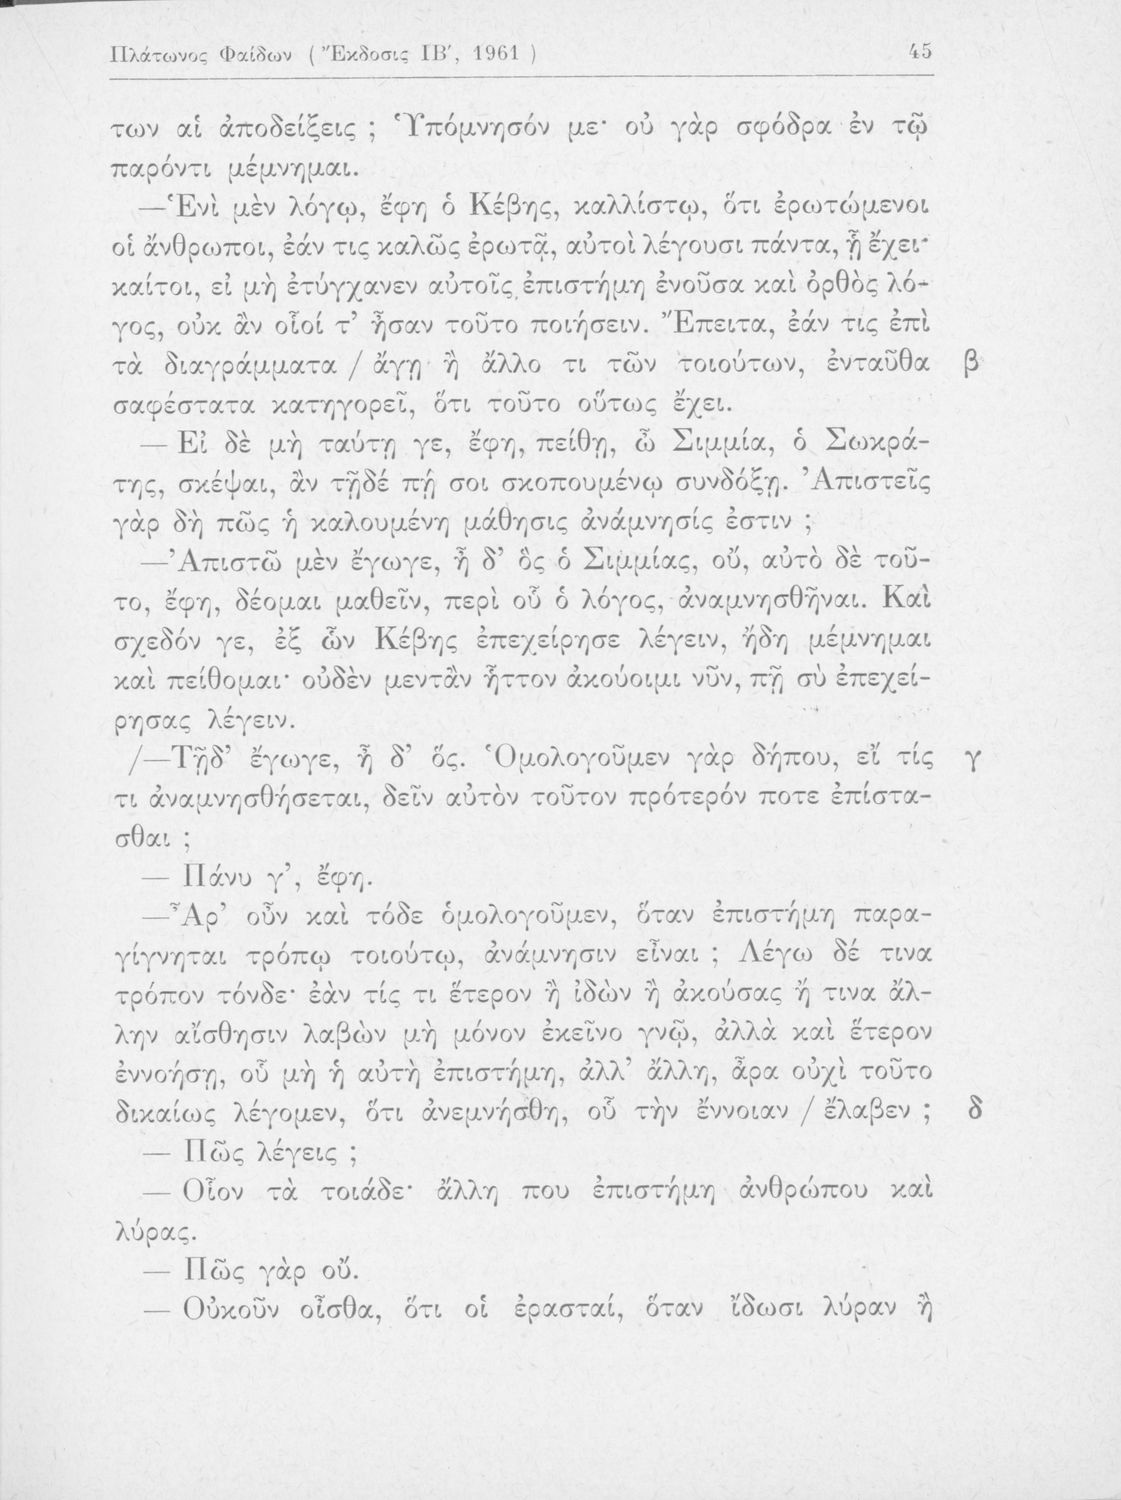 Πλάτωνος Φαίδων ( Ἔκδοσις ΙΒ′, 1961 ) 45
των αἱ ἀποδείξεις ; Ὑπόμνησόν με· οὐ γὰρ σφόδρα ἐν τῷ
παρόντι μέμνημαι.
—Ἑνὶ μὲν λόγῳ, ἔφη ὁ Κέβης, καλλίστῳ, ὅτι ἐρωτώμενοι
οἱ ἄνθρωποι, ἐάν τις καλῶς ἐρωτᾷ, αὐτοὶ λέγουσι πάντα, ᾗ ἔχει·
καίτοι, εἰ μὴ ἐτύγχανεν αὐτοῖς ἐπιστήμη ἐνοῦσα καὶ ὀρθὸς λό-
γος, οὐκ ἂν οἷοί τ’ ἦσαν τοῦτο ποιήσειν. Ἔπειτα, ἐάν τις ἐπὶ
τὰ διαγράμματα / ἄγῃ ἢ ἄλλο τι τῶν τοιούτων, ἐνταῦθα β
σαφέστατα κατηγορεῖ, ὅτι τοῦτο οὕτως ἔχει.
— Εἰ δὲ μὴ ταύτῃ γε, ἔφη, πείθῃ, ὦ Σιμμία, ὁ Σωκρά-
της, σκέψαι, ἂν τῇδέ πῄ σοι σκοπουμένῳ συνδόξῃ. Ἀπιστεῖς
γὰρ δὴ πῶς ἡ καλουμένη μάθησις ἀνάμνησίς ἐστιν ;
—Ἀπιστῶ μὲν ἔγωγε, ἦ δ’ ὃς ὁ Σιμμίας, οὔ, αὐτὸ δὲ τοῦ-
το, ἔφη, δέομαι μαθεῖν, περὶ οὗ ὁ λόγος, ἀναμνησθῆναι. Καὶ
σχεδόν γε, ἐξ ὧν Κέβης ἐπεχείρησε λέγειν, ἤδη μέμνημαι
καὶ πείθομαι· οὐδὲν μεντἂν ἧττον ἀκούοιμι νῦν, πῇ σὺ ἐπεχεί-
ρησας λέγειν.
/—Τῇδ’ ἔγωγε, ἦ δ’ ὅς. Ὁμολογοῦμεν γὰρ δήπου, εἴ τίς γ
τι ἀναμνησθήσεται, δεῖν αὐτὸν τοῦτον πρότερόν ποτε ἐπίστα-
σθαι ;
— Πάνυ γ’, ἔφη.
—Ἆρ’ οὖν καὶ τόδε ὁμολογοῦμεν, ὅταν ἐπιστήμη παρα-
γίγνηται τρόπῳ τοιούτῳ, ἀνάμνησιν εἶναι ; Λέγω δέ τινα
τρόπον τόνδε· ἐὰν τίς τι ἕτερον ἢ ἰδὼν ἢ ἀκούσας ἤ τινα ἄλ-
λην αἴσθησιν λαβὼν μὴ μόνον ἐκεῖνο γνῷ, ἀλλὰ καὶ ἕτερον
ἐννοήσῃ, οὗ μὴ ἡ αὐτὴ ἐπιστήμη, ἀλλ’ ἄλλη, ἆρα οὐχὶ τοῦτο
δικαίως λέγομεν, ὅτι ἀνεμνήσθη, οὗ τὴν ἔννοιαν / ἔλαβεν ; δ
— Πῶς λέγεις ;
— Οἷον τὰ τοιάδε· ἄλλη που ἐπιστήμη ἀνθρώπου καὶ
λύρας.
— Πῶς γὰρ οὔ.
— Οὐκοῦν οἶσθα, ὅτι οἱ ἐρασταί, ὅταν ἴδωσι λύραν ἢ